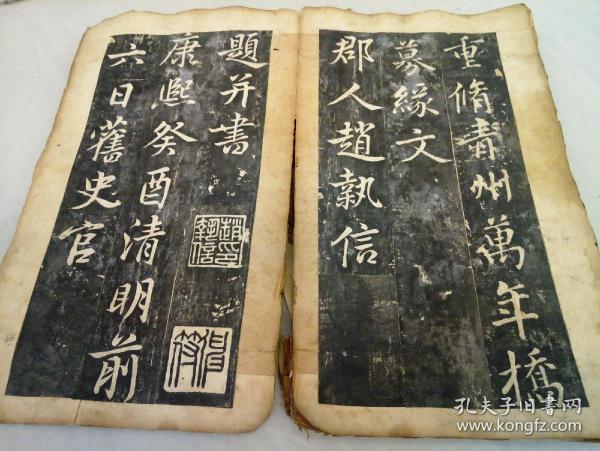 重脩青州萬年橋
募緣文
郡人趙執信
題并書
康熈癸酉清明前
六日舊史官
趙印執信
孔夫子旧书网
www.kongfz.com